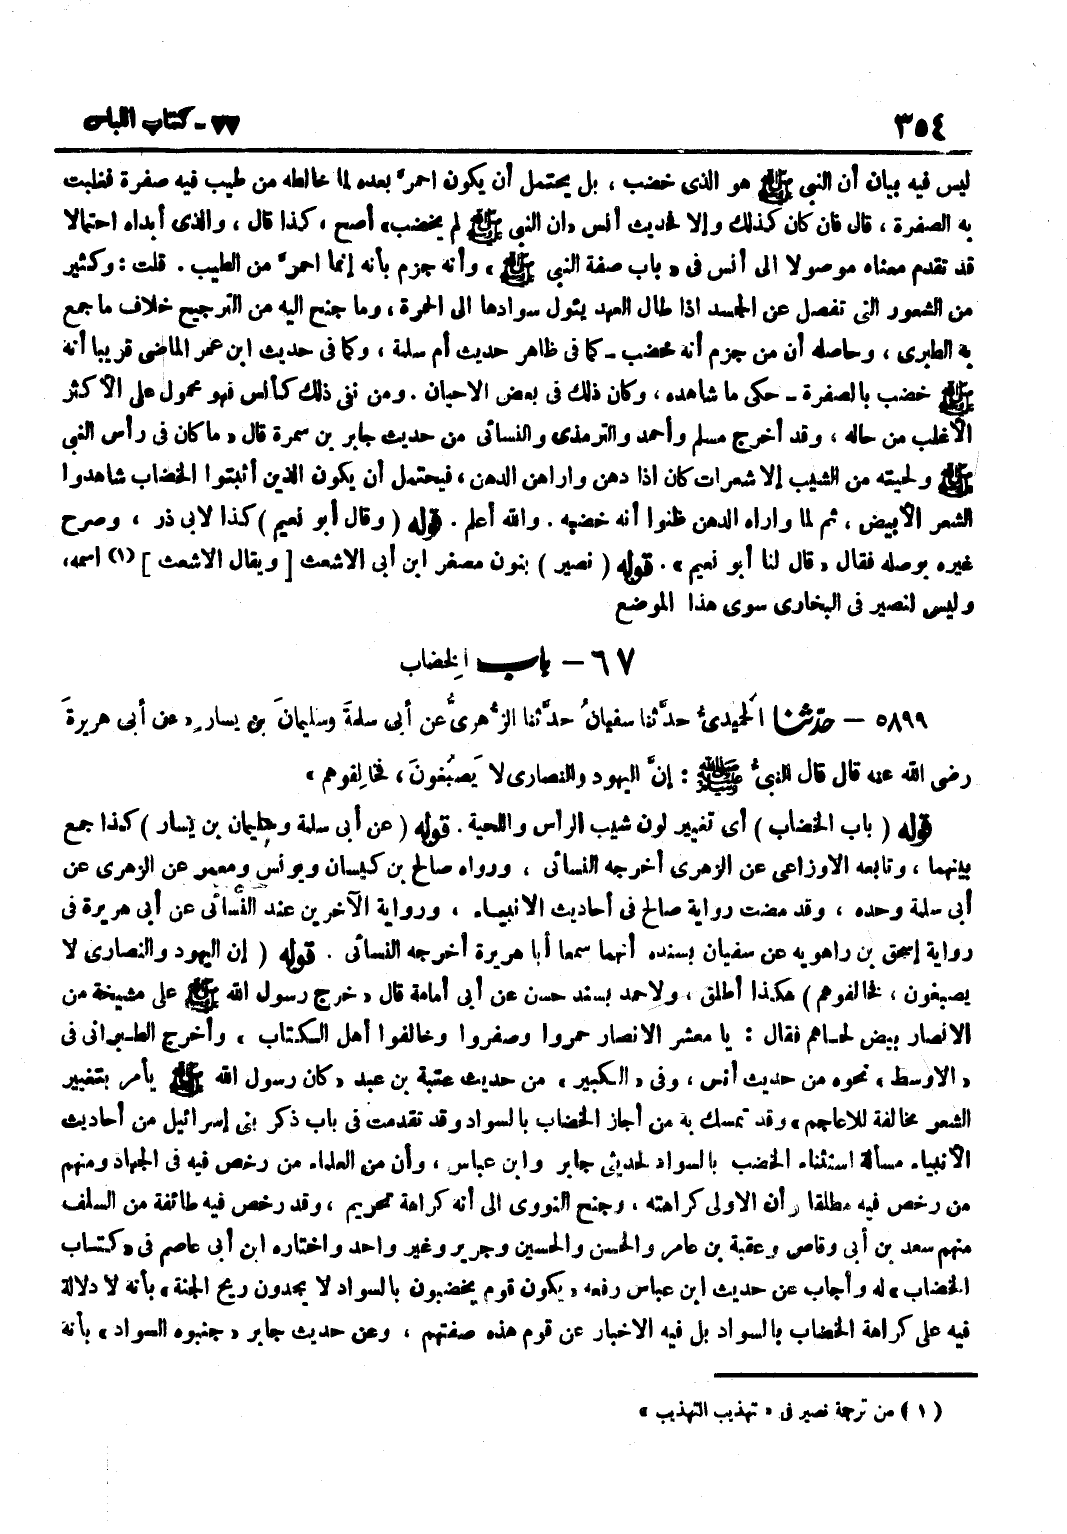 ٣٥٤
٧٧ - كتاب اللباس
ليس فيه بيان أن النبي ﷺ هو الذى خضب ، بل يحتمل أن يكون احمرّ بعده لما خالطه من طيب فيه صفرة فغلبت
به الصفرة ، قال فان كان كذلك وإلا لحديث أنس «ان النبي ﷺ لم يخضب» أصح ، كذا قال ، والذى أبداه احتمالا
قد تقدم معناه موصولا الى أنس فى « باب صفة النبي ﷺ » وأنه جزم بأنه إنما احمرّ من الطيب . قلت : وكثير
من الشعور التى تفصل عن الجسد اذا طال العهد يئول سوادها الى الحمرة ، وما جنح اليه من الترجيح خلاف ما جمع
به الطبرى ، وحاصله أن من جزم أنه خضب ـ كما فى ظاهر حديث أم سلمة ، وكما فى حديث ابن عمر الماضى قريبا أنه
ﷺ خضب بالصفرة ـ حكى ما شاهده ، وكان ذلك فى بعض الاحيان . ومن نفى ذلك كأنس فهو محمول على الأكثر
الأغلب من حاله ، وقد أخرج مسلم وأحمد والترمذى والنسائى من حديث جابر بن سمرة قال « ما كان فى رأس النبي
ﷺ ولحيته من الشيب إلا شعرات كان اذا دهن واراهن الدهن ، فيحتمل أن يكون الذين أثبتوا الخضاب شاهدوا
الشعر الأبيض ، ثم لما واراه الدهن ظنوا أنه خضبه . والله أعلم . قوله ( وقال أبو نعيم ) كذا لابى ذر ، وصرح
غيره بوصله فقال « قال لنا أبو نعيم » . قوله ( نصير ) بنون مصغر ابن أبى الاشعث [ ويقال الاشعث ] (١) اسمه،
وليس لنصير فى البخارى سوى هذا الموضع
٦٧ - باب الخضاب
٥٨٩٩ - حدّثنا الحميدىُّ حدَّثنا سفيانُ حدَّثنا الزُّهرىُّ عن أبى سلمةَ وسليمانَ بن يسار « عن أبى هريرةَ
رضى الله عنه قال قال النبىُّ ﷺ : إنَّ اليهود والنصارى لا يَصبُغونَ ، فخالِفوهم »
قوله ( باب الخضاب ) أى تغيير لون شيب الرأس واللحية . قوله ( عن أبى سلمة وسليمان بن يسار ) كذا جمع
بينهما ، وتابعه الاوزاعى عن الزهرى أخرجه النسائى ، ورواه صالح بن كيسان ويونس ومعمر عن الزهرى عن
أبى سلمة وحده ، وقد مضت رواية صالح فى أحاديث الانبياء ، ورواية الآخرين عند النسائى عن أبى هريرة فى
رواية إسحق بن راهويه عن سفيان بسنده أنهما سمعا أبا هريرة أخرجه النسائى . قوله ( إن اليهود والنصارى لا
يصبغون ، فخالفوهم ) هكذا أطلق ، ولاحمد بسند حسن عن أبى أمامة قال « خرج رسول الله ﷺ على مشيخة من
الانصار بيض لحاهم فقال : يا معشر الانصار حمروا وصفروا وخالفوا أهل الكتاب » وأخرج الطبرانى فى
« الاوسط » نحوه من حديث أنس ، وفى « الكبير » من حديث عتبة بن عبد « كان رسول الله ﷺ يأمر بتغيير
الشعر مخالفة للاعاجم » وقد تمسك به من أجاز الخضاب بالسواد وقد تقدمت فى باب ذكر بنى إسرائيل من أحاديث
الأنبياء مسألة استثناء الخضب بالسواد لحديثى جابر وابن عباس ، وأن من العلماء من رخص فيه فى الجهاد ومنهم
من رخص فيه مطلقا وأن الاولى كراهته ، وجنح النووى الى أنه كراهة تحريم ، وقد رخص فيه طائفة من السلف
منهم سعد بن أبى وقاص وعقبة بن عامر والحسن والحسين وجرير وغير واحد واختاره ابن أبى عاصم فى « كتاب
الخضاب » له وأجاب عن حديث ابن عباس رفعه « يكون قوم يخضبون بالسواد لا يجدون ريح الجنة » بأنه لا دلالة
فيه على كراهة الخضاب بالسواد بل فيه الاخبار عن قوم هذه صفتهم ، وعن حديث جابر « جنبوه السواد » بأنه
(١) من ترجمة نصير فى « تهذيب التهذيب »